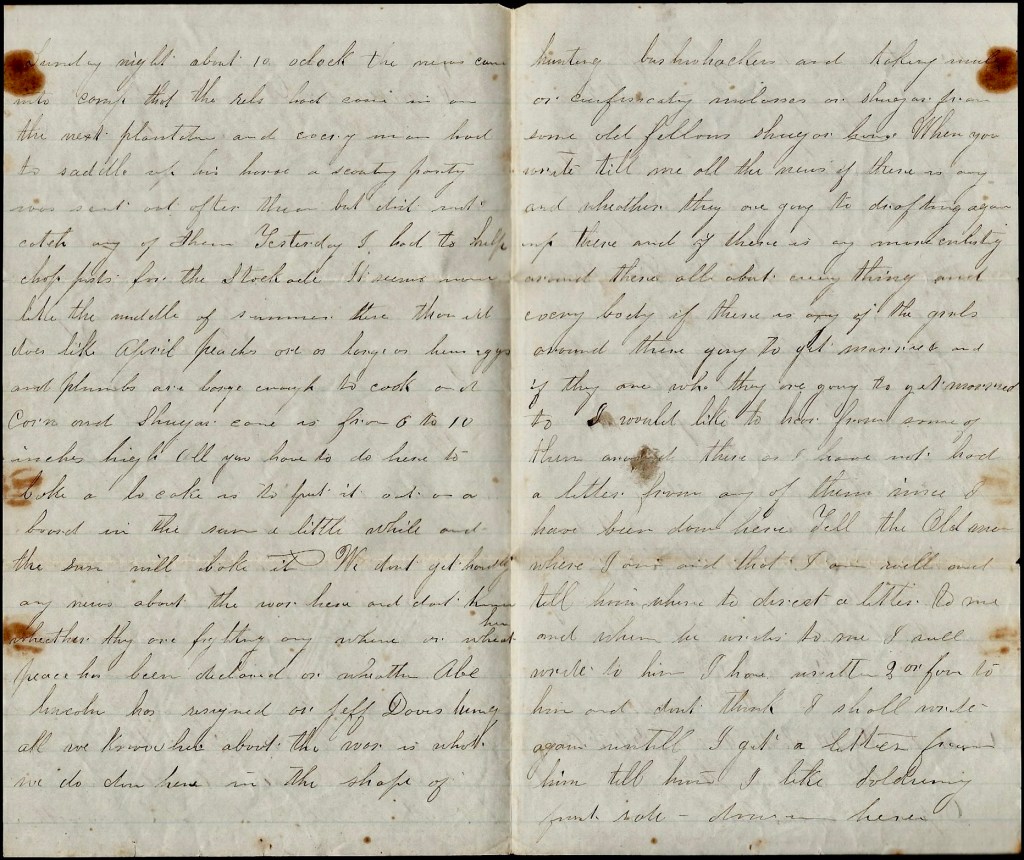 Sunday night about 10 oclock the news came
into camp that the rebs had come in on
the next plantation and every man had
to saddle up his horse a scouting party
was sent out after them but did not
catch any of them Yesterday I had to help
chop posts for the Stockade It seems more
like the middle of summer here than it
does like April peaches are as large as hens eggs
and plumbs are large enough to cook and
corn and Shugar cane is from 6 to 10
inches high All you have to do here to
bake a ho cake is to put it out on a
board in the sun a little while and
the sun will bake it We dont get hardly
any news about the war here and dont know
wheather they are fighting any where or wheather
peace has been declared or wheather Abe
Lincoln has resigned or Jeff Davis hung
all we know here about the war is what
we do down here in the shape of
hunting bushwhackers and taking mules
or confiscating molasses or shugar from
some old fellows shugar house When you
write tell me all the news if there is any
and wheather they are going to drafting again
up there and if there is any more enlisting
around there all about every thing and
every body if there is any of the girls
around there going to get married and
if they are who they are going to get married
to I would like to hear from some of
them around there as I have not had
a letter from any of them since I
have been down here Tell the Old man
where I am and that I am well and
tell him where to direct a letter to me
and when he writes to me I will
write to him I have written 2 or four to
him and dont think I shall write
again untill I get a letter from
him tell him I like soldiering
first rate down here